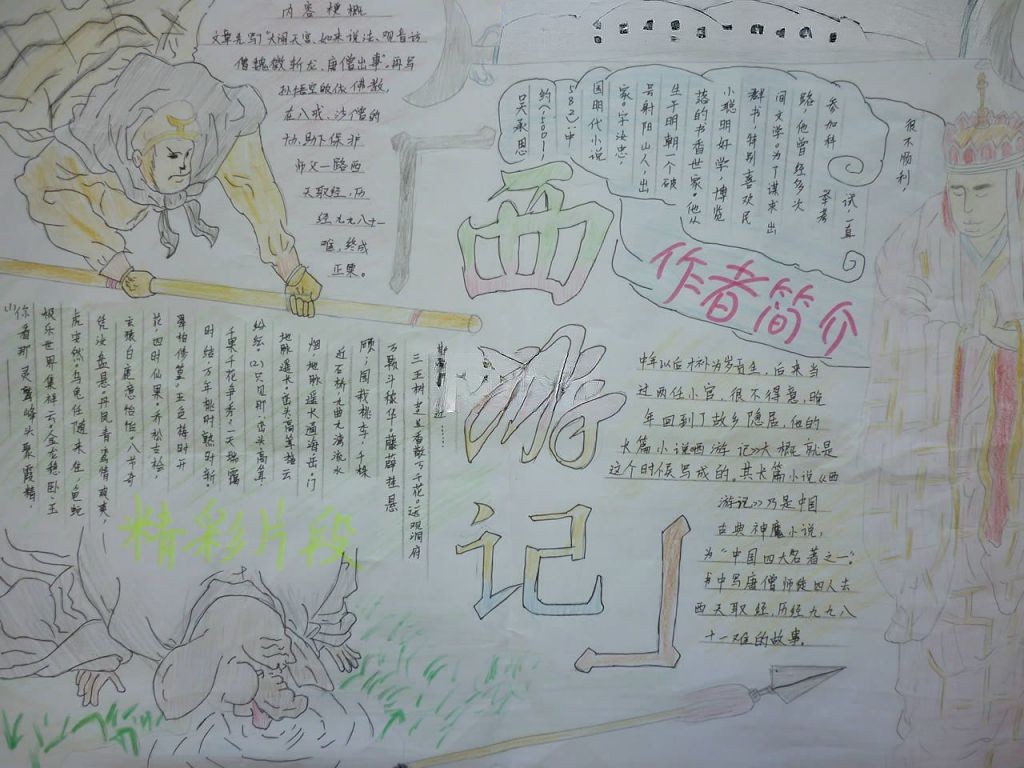 内容梗概
文章先写了"大闹天宫、如来说法、观音访
僧、魏徵斩龙、唐僧出事",再写
孙悟空皈依佛教,
在八戒、沙僧的
协助下保护
师父一路西
天取经,历
经九九八十一
难,终成
正果。
「西游记」
作者简介
吴承恩
约(1500—1
582),中
国明代小说
家。字汝忠,
号射阳山人,出
生于明朝一个破
落的书香世家。他从
小聪明好学,博览
群书,特别喜欢民
间文学。为了谋求出
路,他曾经多次
参加科
举考
试,直
很不顺利
中年以后才补为岁贡生,后来当
过两任小官,很不得意,晚
年回到了故乡隐居,他的
长篇小说西游记》大概就是
这个时候写成的。其长篇小说《西
游记》乃是中国
古典神魔小说,
为"中国四大名著之一"。
书中写唐僧师徒四人去
西天取经历经九九八
十一难的故事。
精彩片段
(1)你看那灵鹫峰头聚霞精,
极乐世界集祥云。金龙稳卧,玉
虎安然。乌兔任随来往,龟蛇
凭汝盘悬。丹凤青鸾情爽爽,
玄猿白鹿意怡怡。八节奇
花,四时仙果。乔松古桧,
翠柏修篁。五色梅时开
时结,万年桃时熟时新。
千果千花争秀,一天瑞霭
纷纭。(2)只见那
地脉遥长,
烟,地脉遥长通海岳。门
近石桥,九曲九湾流水
顾;园栽桃李,千株
万颗斗秾华。藤薜挂悬
三五树,芝兰香散万千花。远观洞府